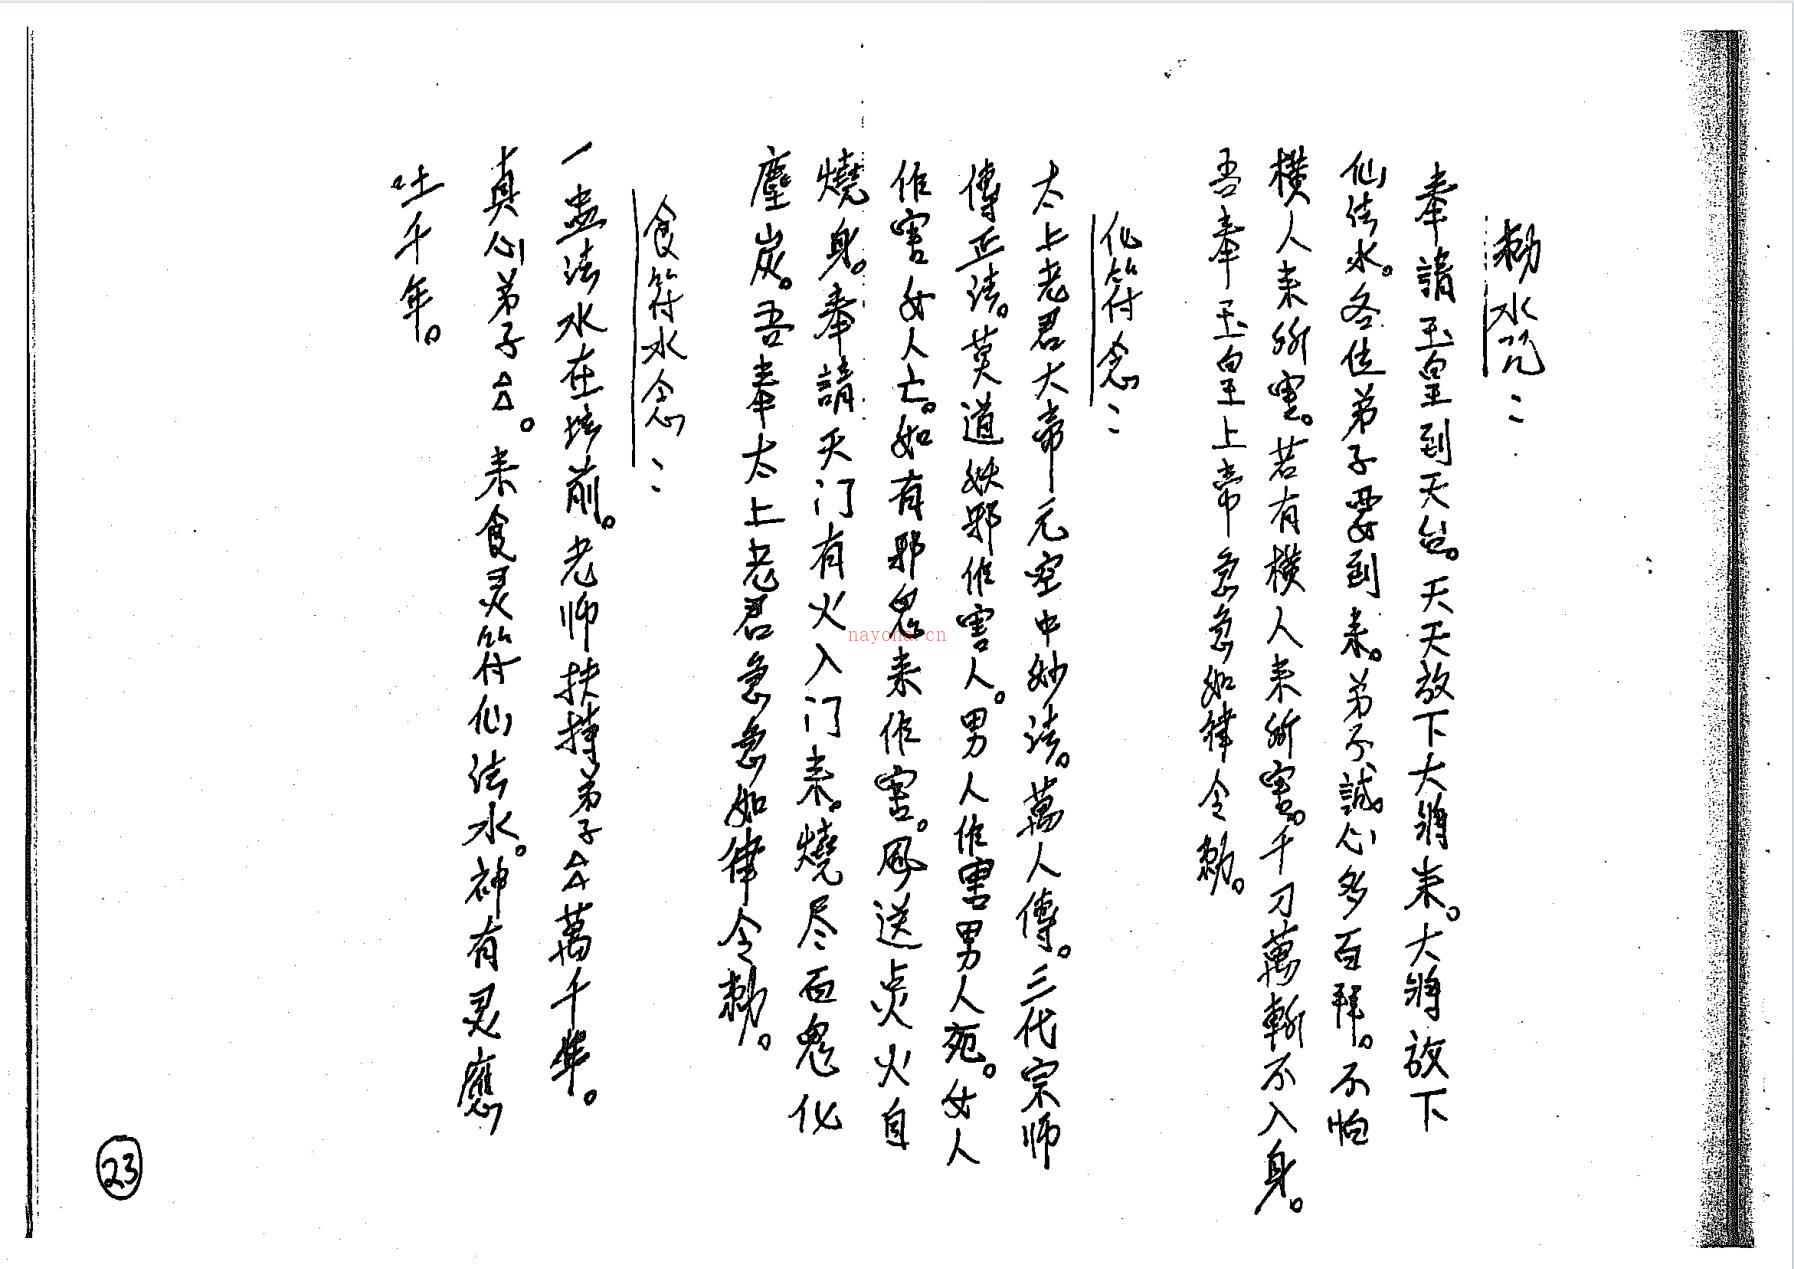 勅水咒：
奉請玉皇到天台。天天放下大將来。大將放下
仙法水。各位弟子要到来。弟子誠心多百拜。不怕
横人来所害。若有横人来所害。千刀萬斬不入身。
吾奉玉皇上帝急急如律令勅。
化符念：
太上老君大帝元空中妙法。萬人傳。三代宗师
傳正法。莫道妖邪作害人。男人作害男人死。女人
作害女人亡。如有邪鬼来作害。風送点火自
燒身。奉請天门有火入门来。燒尽百鬼化
塵炭。吾奉太上老君急急如律令勅。
食符水念：
一盅法水在坛前。老师扶持弟子△△萬千年。
真心弟子△△。来食灵符仙法水。神有灵應
吐千年。
23
nayona.cn